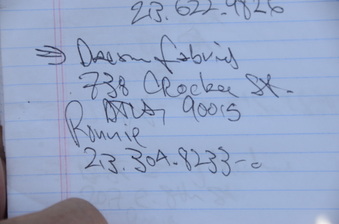 213.622.9826
⇒ Dream fabrics
738 CRocker St.
DTLA, 90015
Ronnie
213.304.8233-c